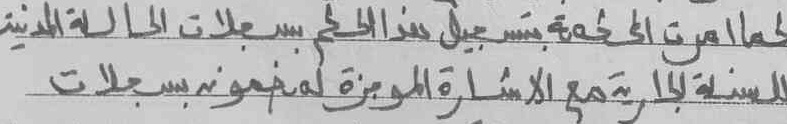 كما امرت المحكمة بتسجيل هذا الحكم بسجلات الحالة المدنية
للسنة الجارية مع الاشارة الموجزة لمضمونه بسجلات